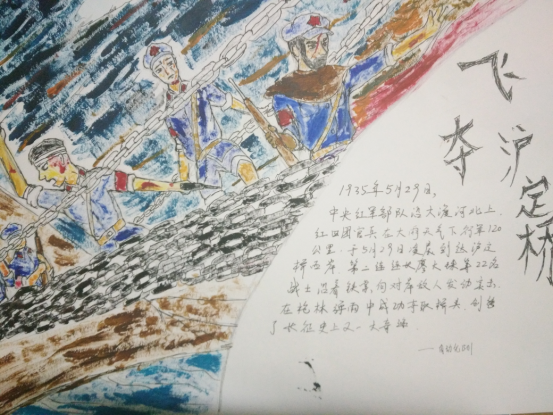 飞夺
沪定桥
1935年5月29日。
中央红军部队沿大渡河北上,
红四团官兵在天气下行军120
公里,于5月29日凌晨到达沪定
桥西岸。第二连连长廖大珠率22名
战士沿着铁索,向对岸敌人发动攻击,
在枪林弹雨中成功夺取桥头,创造
了长征史上又一大奇迹